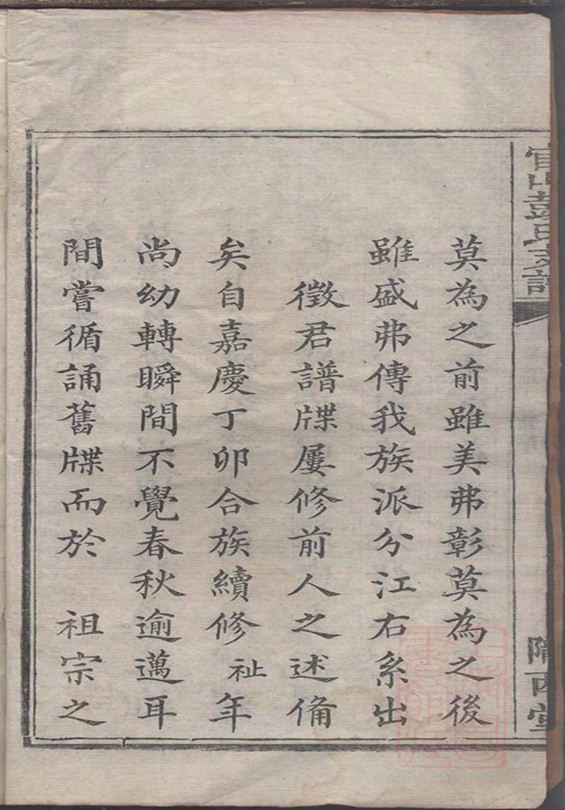 官山彭氏支譜
隴西堂
莫為之前雖美弗彰莫為之後
雖盛弗傳我族派分江右系出
徵君譜牒屢修前人之述備
矣自嘉慶丁卯合族續修祉年
尚幼轉瞬間不覺春秋逾邁耳
間嘗循誦舊牒而於 祖宗之